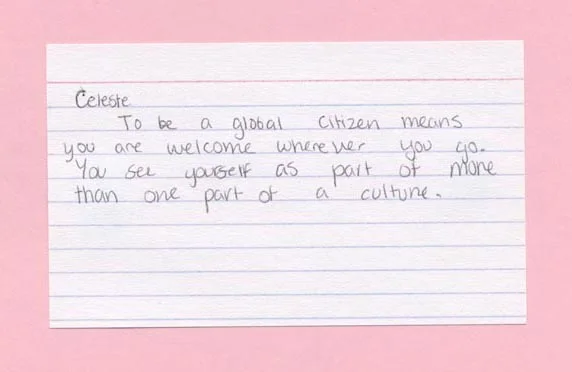 Celeste
To be a global citizen means
you are welcome where ver you go.
You see yourself as part of more
than one part of a culture.